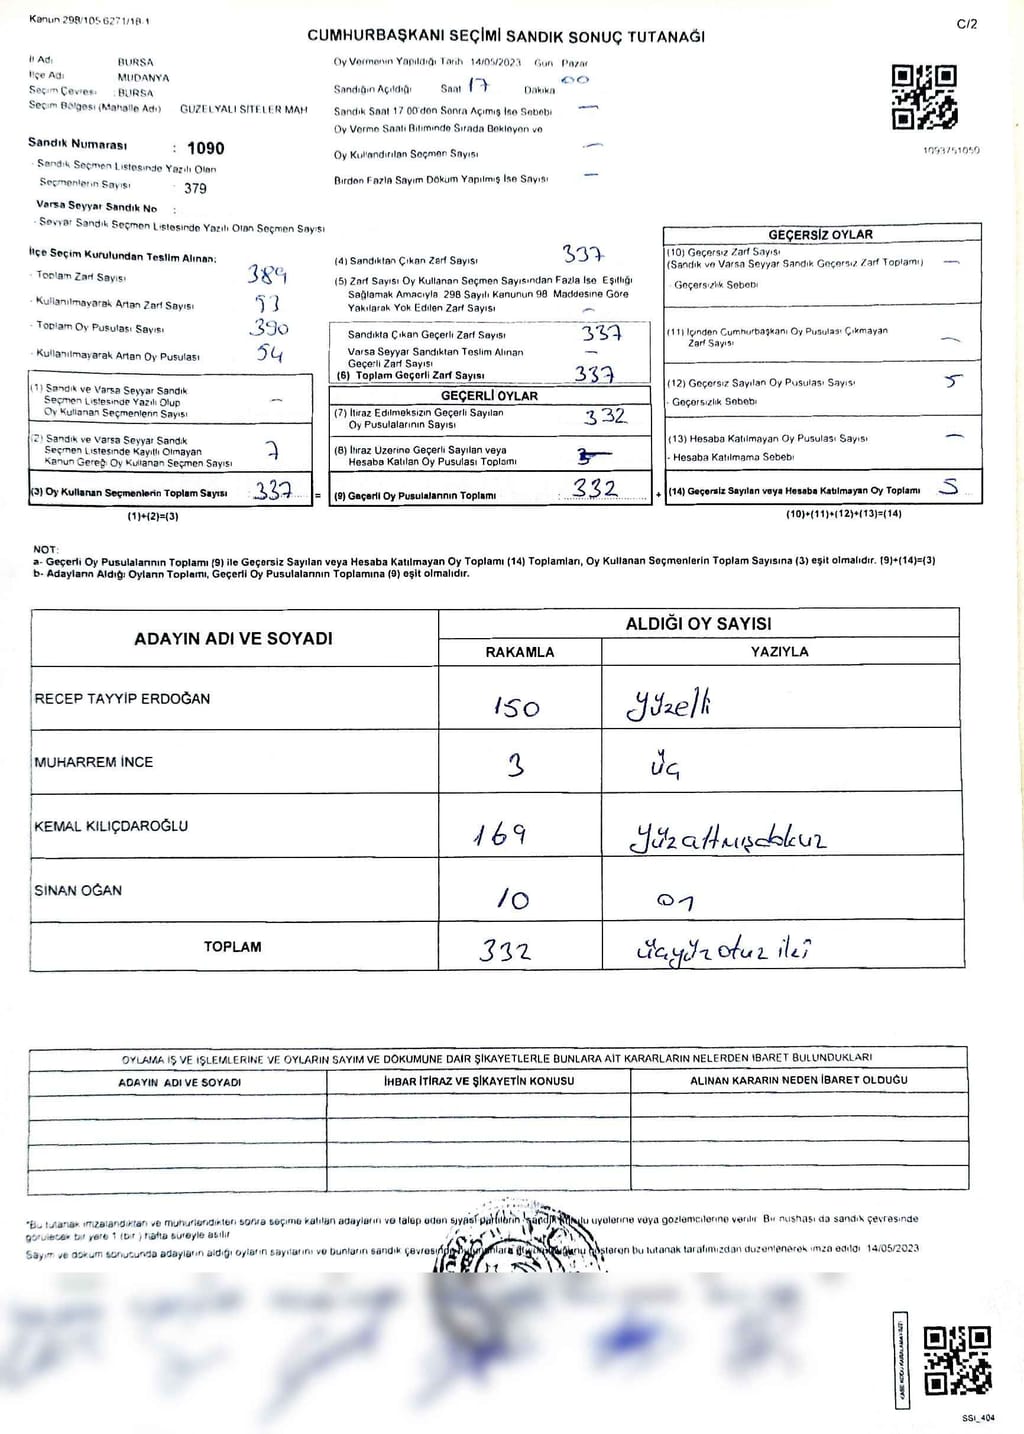 Kanun 298/105 6271/18-1
C/2
CUMHURBAŞKANI SEÇİMİ SANDIK SONUÇ TUTANAĞI
İl Adı : BURSA
İlçe Adı MUDANYA
Seçim Çevresi : BURSA
Seçim Bölgesi (Mahalle Adı) GÜZELYALI SİTELER MAH
Sandık Numarası : 1090
- Sandık Seçmen Listesinde Yazılı Olan
Seçmenlerin Sayısı 379
Varsa Seyyar Sandık No :
- Seyyar Sandık Seçmen Listesinde Yazılı Olan Seçmen Sayısı
Oy Vermenin Yapıldığı Tarih 14/05/2023 Gün Pazar
Sandığın Açıldığı Saat 17 Dakika 00
Sandık Saat 17 00'den Sonra Açımış İse Sebebi —
Oy Verme Saati Bitiminde Sırada Bekleyen ve
Oy Kullandırılan Seçmen Sayısı —
Birden Fazla Sayım Döküm Yapılmış İse Sayısı —
1093751050
İlçe Seçim Kurulundan Teslim Alınan;
- Toplam Zarf Sayısı 389
- Kullanılmayarak Artan Zarf Sayısı 53
- Toplam Oy Pusulası Sayısı 390
- Kullanılmayarak Artan Oy Pusulası 54
(1) Sandık ve Varsa Seyyar Sandık
Seçmen Listesinde Yazılı Olup
Oy Kullanan Seçmenlerin Sayısı —
(2) Sandık ve Varsa Seyyar Sandık
Seçmen Listesinde Kayıtlı Olmayan
Kanun Gereği Oy Kullanan Seçmen Sayısı 7
(3) Oy Kullanan Seçmenlerin Toplam Sayısı 337 =
(1)+(2)=(3)
(4) Sandıktan Çıkan Zarf Sayısı 337
(5) Zarf Sayısı Oy Kullanan Seçmen Sayısından Fazla İse Eşitliği
Sağlamak Amacıyla 298 Sayılı Kanunun 98 Maddesine Göre
Yakılarak Yok Edilen Zarf Sayısı —
Sandıkta Çıkan Geçerli Zarf Sayısı 337
Varsa Seyyar Sandıktan Teslim Alınan
Geçerli Zarf Sayısı —
(6) Toplam Geçerli Zarf Sayısı 337
GEÇERLİ OYLAR
(7) İtiraz Edilmeksizin Geçerli Sayılan
Oy Pusulalarının Sayısı 332
(8) İtiraz Üzerine Geçerli Sayılan veya
Hesaba Katılan Oy Pusulası Toplamı
(9) Geçerli Oy Pusulalarının Toplamı 332 +
GEÇERSİZ OYLAR
(10) Geçersiz Zarf Sayısı
(Sandık ve Varsa Seyyar Sandık Geçersiz Zarf Toplamı) —
- Geçersizlik Sebebi
(11) İçinden Cumhurbaşkanı Oy Pusulası Çıkmayan
Zarf Sayısı —
(12) Geçersiz Sayılan Oy Pusulası Sayısı 5
- Geçersizlik Sebebi
(13) Hesaba Katılmayan Oy Pusulası Sayısı —
- Hesaba Katılmama Sebebi
(14) Geçersiz Sayılan veya Hesaba Katılmayan Oy Toplamı 5
(10)+(11)+(12)+(13)=(14)
NOT:
a- Geçerli Oy Pusulalarının Toplamı (9) ile Geçersiz Sayılan veya Hesaba Katılmayan Oy Toplamı (14) Toplamları, Oy Kullanan Seçmenlerin Toplam Sayısına (3) eşit olmalıdır. (9)+(14)=(3)
b- Adayların Aldığı Oyların Toplamı, Geçerli Oy Pusulalarının Toplamına (9) eşit olmalıdır.
ADAYIN ADI VE SOYADI
ALDIĞI OY SAYISI
RAKAMLA YAZIYLA
RECEP TAYYİP ERDOĞAN 150 yüzelli
MUHARREM İNCE 3 üç
KEMAL KILIÇDAROĞLU 169 yüzaltmışdokuz
SİNAN OĞAN 10 on
TOPLAM 332 üçyüz otuz iki
OYLAMA İŞ VE İŞLEMLERİNE VE OYLARIN SAYIM VE DÖKÜMÜNE DAİR ŞİKAYETLERLE BUNLARA AİT KARARLARIN NELERDEN İBARET BULUNDUKLARI
ADAYIN ADI VE SOYADI İHBAR İTİRAZ VE ŞİKAYETİN KONUSU ALINAN KARARIN NEDEN İBARET OLDUĞU
*Bu tutanak imzalandıktan ve mühürlendikten sonra seçime katılan adayların ve talep eden siyasi partilerin sandık kurulu üyelerine veya gözlemcilerine verilir. Bir nüshası da sandık çevresinde
görülecek bir yere 1 (bir) hafta süreyle asılır
Sayım ve döküm sonucunda adayların aldığı oyların sayılarını ve bunların sandık çevresinde gösteren bu tutanak tarafımızdan düzenlenerek imza edildi 14/05/2023
SSI_404